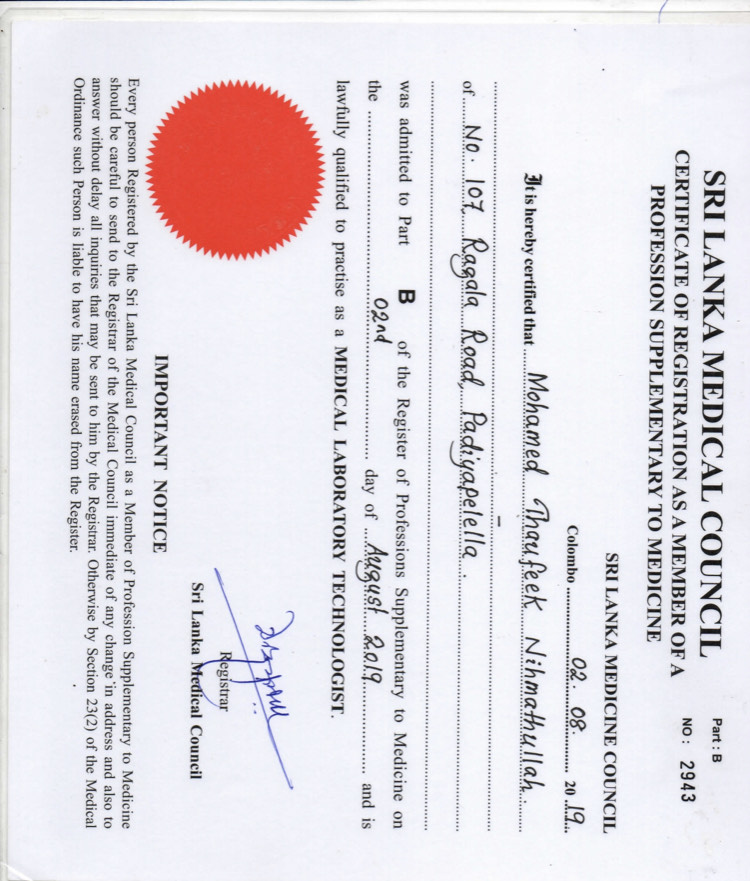 SRI LANKA MEDICAL COUNCIL
CERTIFICATE OF REGISTRATION AS A MEMBER OF A
PROFESSION SUPPLEMENTARY TO MEDICINE
Part : B
NO : 2943
SRI LANKA MEDICINE COUNCIL
Colombo 02. 08. 20 19
It is hereby certified that Mohamed Thaufeek Nihmathullah.
of No. 107, Ragala Road, Padiyapelella.
was admitted to Part B of the Register of Professions Supplementary to Medicine on
the 02nd day of August 2019 and is
lawfully qualified to practise as a MEDICAL LABORATORY TECHNOLOGIST.
Registrar
Sri Lanka Medical Council
IMPORTANT NOTICE
Every person Registered by the Sri Lanka Medical Council as a Member of Profession Supplementary to Medicine
should be careful to send to the Registrar of the Medical Council immediate of any change in address and also to
answer without delay all inquiries that may be sent to him by the Registrar. Otherwise by Section 23(2) of the Medical
Ordinance such Person is liable to have his name erased from the Register.